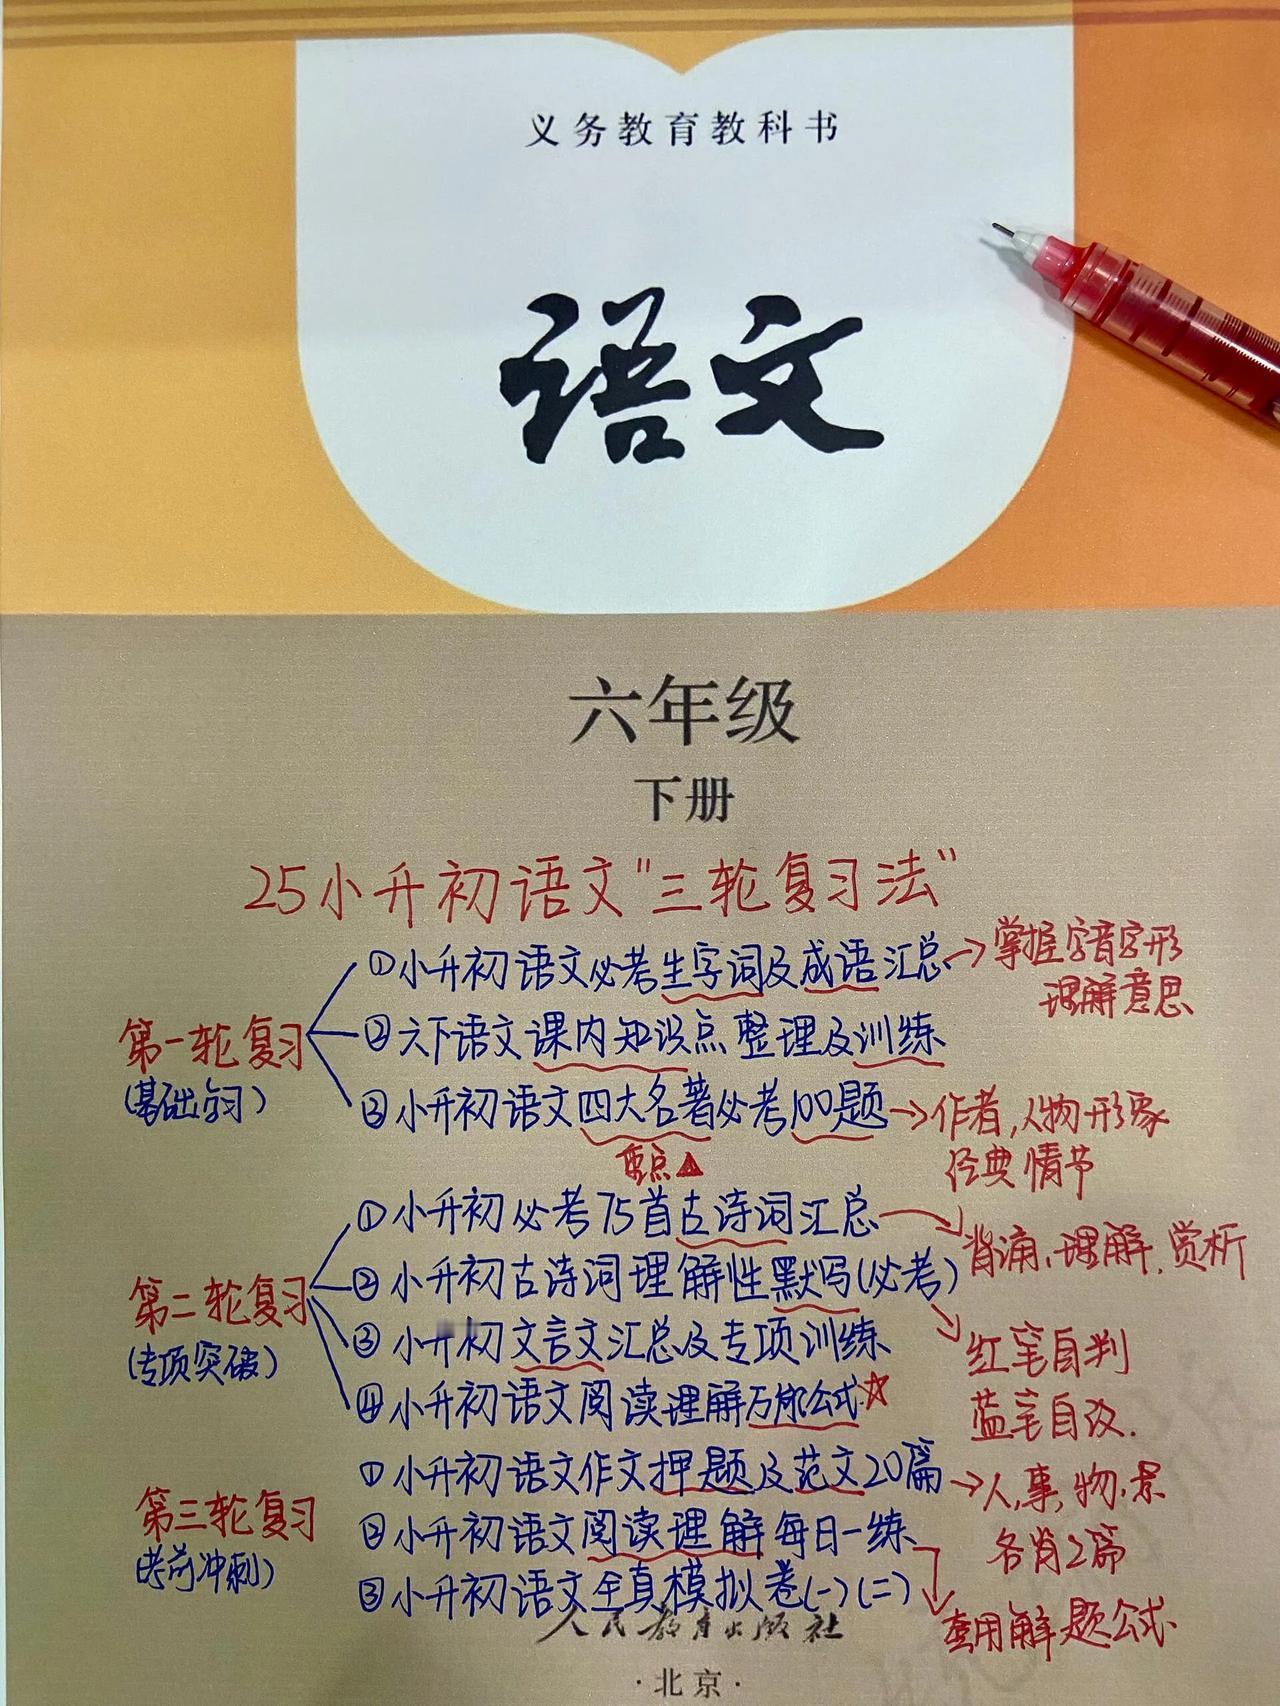 义务教育教科书
语文
六年级
下册
25小升初语文"三轮复习法"
第一轮复习
(基础学习)
①小升初语文必考生字词及成语汇总→掌握字音字形
理解意思
②六下语文课内知识点整理及训练
③小升初语文四大名著必考100题→作者,人物形象
经典情节
重点
第二轮复习
(专项突破)
①小升初必考75首古诗词汇总→背诵、理解、赏析
②小升初古诗词理解性默写(必考)→红笔自判
蓝笔自改.
③小升初文言文汇总及专项训练
④小升初语文阅读理解万能公式☆
第三轮复习
(考前冲刺)
①小升初语文作文押题及范文20篇→人,事,物,景
各背2篇
②小升初语文阅读理解每日一练→套用解题公式.
③小升初语文全真模拟卷(一)(二)
人民教育出版社
·北京·